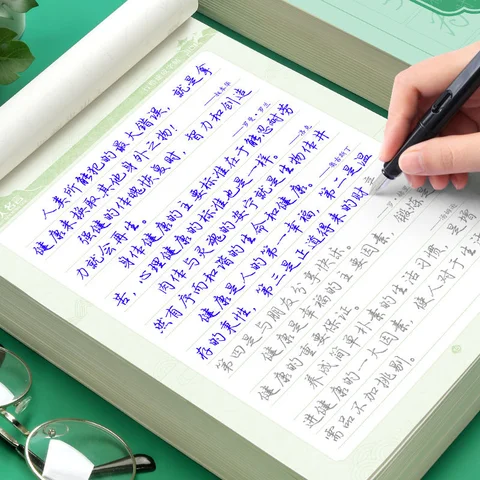 人类所能犯的最大错误，就是拿
健康来换取其他身外之物！
强健的体魄恢复时，智力和创造
力就会再生。
身体健康的主要标准在于能忍耐劳
苦，心理健康的标准也是一样。
肉体与灵魂的安宁就是生物体井
然有序而和谐的生命和健康。
健康是人的第一幸福，第二是温
存的秉性，第三是正道得来的财
第四是与朋友分享快乐。
健康是幸福的主要因素，锻炼是
健康的重要保证。
养成简单朴素的生活习惯，是增
进健康的一大因素，使人对于生活
需品不加挑剔。